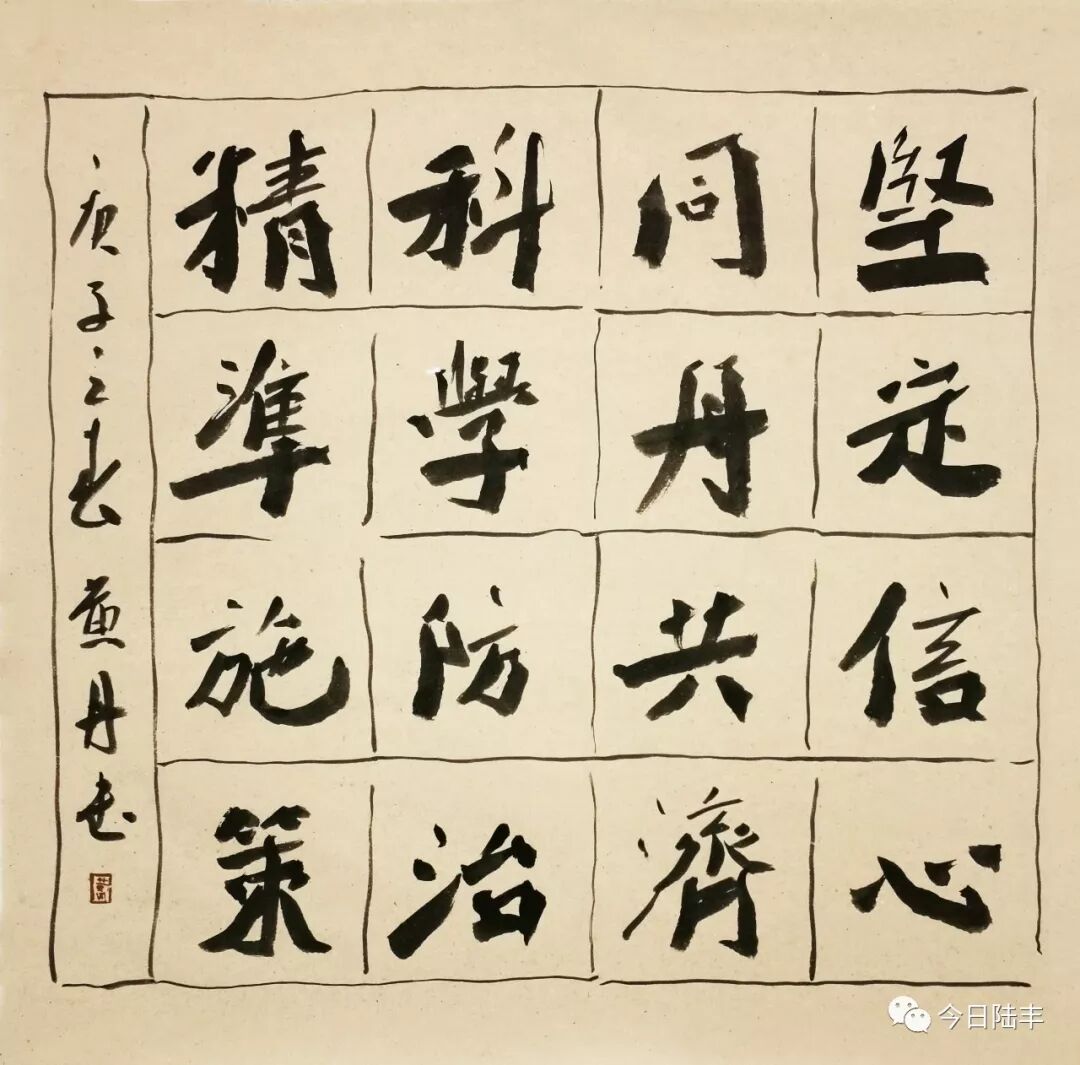 堅定信心
同舟共濟
科學防治
精準施策
庚子之春 黄丹书
今日陆丰